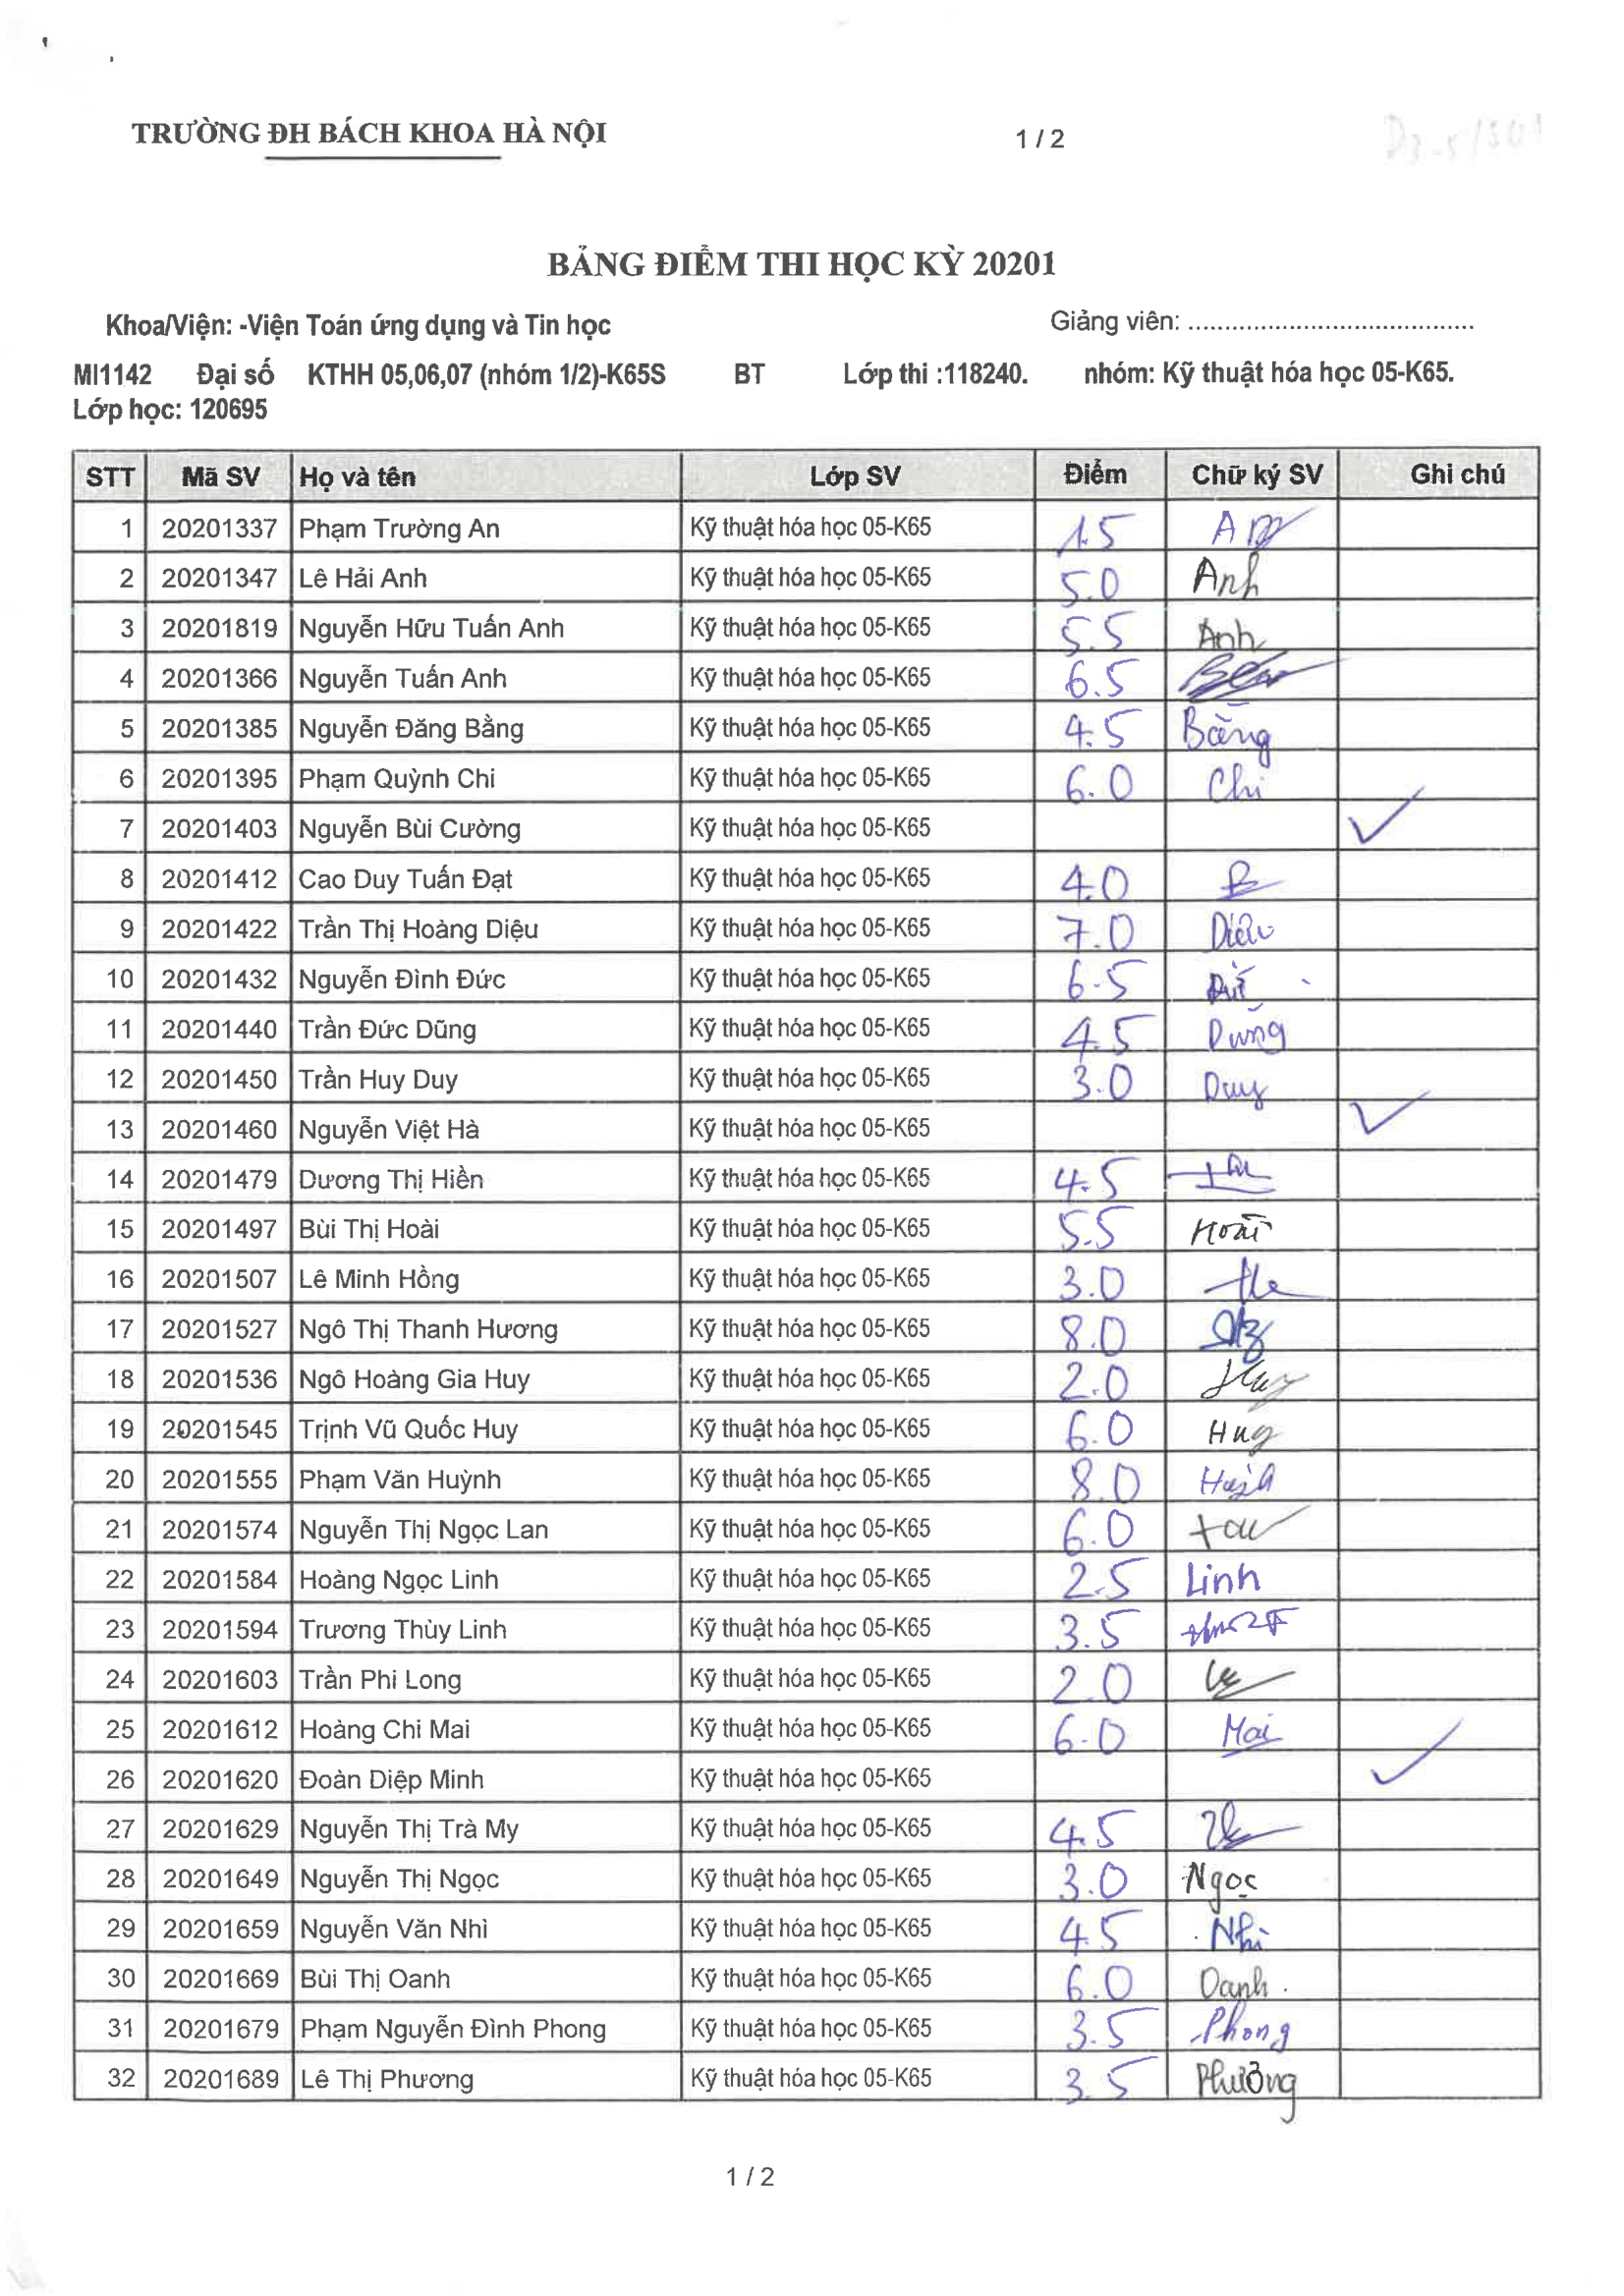 TRƯỜNG ĐH BÁCH KHOA HÀ NỘI 1 / 2
BẢNG ĐIỂM THI HỌC KỲ 20201
Khoa/Viện: -Viện Toán ứng dụng và Tin học Giảng viên: ........................................
MI1142 Đại số KTHH 05,06,07 (nhóm 1/2)-K65S BT Lớp thi :118240. nhóm: Kỹ thuật hóa học 05-K65.
Lớp học: 120695
STT Mã SV Họ và tên Lớp SV Điểm Chữ ký SV Ghi chú
1 20201337 Phạm Trường An Kỹ thuật hóa học 05-K65 1.5
2 20201347 Lê Hải Anh Kỹ thuật hóa học 05-K65 5.0 Anh
3 20201819 Nguyễn Hữu Tuấn Anh Kỹ thuật hóa học 05-K65 5.5 Anh
4 20201366 Nguyễn Tuấn Anh Kỹ thuật hóa học 05-K65 6.5
5 20201385 Nguyễn Đăng Bằng Kỹ thuật hóa học 05-K65 4.5 Bằng
6 20201395 Phạm Quỳnh Chi Kỹ thuật hóa học 05-K65 6.0 Chi
7 20201403 Nguyễn Bùi Cường Kỹ thuật hóa học 05-K65 ✓
8 20201412 Cao Duy Tuấn Đạt Kỹ thuật hóa học 05-K65 4.0
9 20201422 Trần Thị Hoàng Diệu Kỹ thuật hóa học 05-K65 7.0 Diệu
10 20201432 Nguyễn Đình Đức Kỹ thuật hóa học 05-K65 6.5
11 20201440 Trần Đức Dũng Kỹ thuật hóa học 05-K65 4.5 Dũng
12 20201450 Trần Huy Duy Kỹ thuật hóa học 05-K65 3.0 Duy
13 20201460 Nguyễn Việt Hà Kỹ thuật hóa học 05-K65 ✓
14 20201479 Dương Thị Hiền Kỹ thuật hóa học 05-K65 4.5
15 20201497 Bùi Thị Hoài Kỹ thuật hóa học 05-K65 5.5 Hoài
16 20201507 Lê Minh Hồng Kỹ thuật hóa học 05-K65 3.0
17 20201527 Ngô Thị Thanh Hương Kỹ thuật hóa học 05-K65 8.0
18 20201536 Ngô Hoàng Gia Huy Kỹ thuật hóa học 05-K65 2.0 Huy
19 20201545 Trịnh Vũ Quốc Huy Kỹ thuật hóa học 05-K65 6.0 Huy
20 20201555 Phạm Văn Huỳnh Kỹ thuật hóa học 05-K65 8.0
21 20201574 Nguyễn Thị Ngọc Lan Kỹ thuật hóa học 05-K65 6.0
22 20201584 Hoàng Ngọc Linh Kỹ thuật hóa học 05-K65 2.5 Linh
23 20201594 Trương Thùy Linh Kỹ thuật hóa học 05-K65 3.5
24 20201603 Trần Phi Long Kỹ thuật hóa học 05-K65 2.0
25 20201612 Hoàng Chi Mai Kỹ thuật hóa học 05-K65 6.0 Mai
26 20201620 Đoàn Diệp Minh Kỹ thuật hóa học 05-K65 ✓
27 20201629 Nguyễn Thị Trà My Kỹ thuật hóa học 05-K65 4.5
28 20201649 Nguyễn Thị Ngọc Kỹ thuật hóa học 05-K65 3.0 Ngọc
29 20201659 Nguyễn Văn Nhì Kỹ thuật hóa học 05-K65 4.5 Nhì
30 20201669 Bùi Thị Oanh Kỹ thuật hóa học 05-K65 6.0 Oanh
31 20201679 Phạm Nguyễn Đình Phong Kỹ thuật hóa học 05-K65 3.5 Phong
32 20201689 Lê Thị Phương Kỹ thuật hóa học 05-K65 3.5 Phương
1 / 2